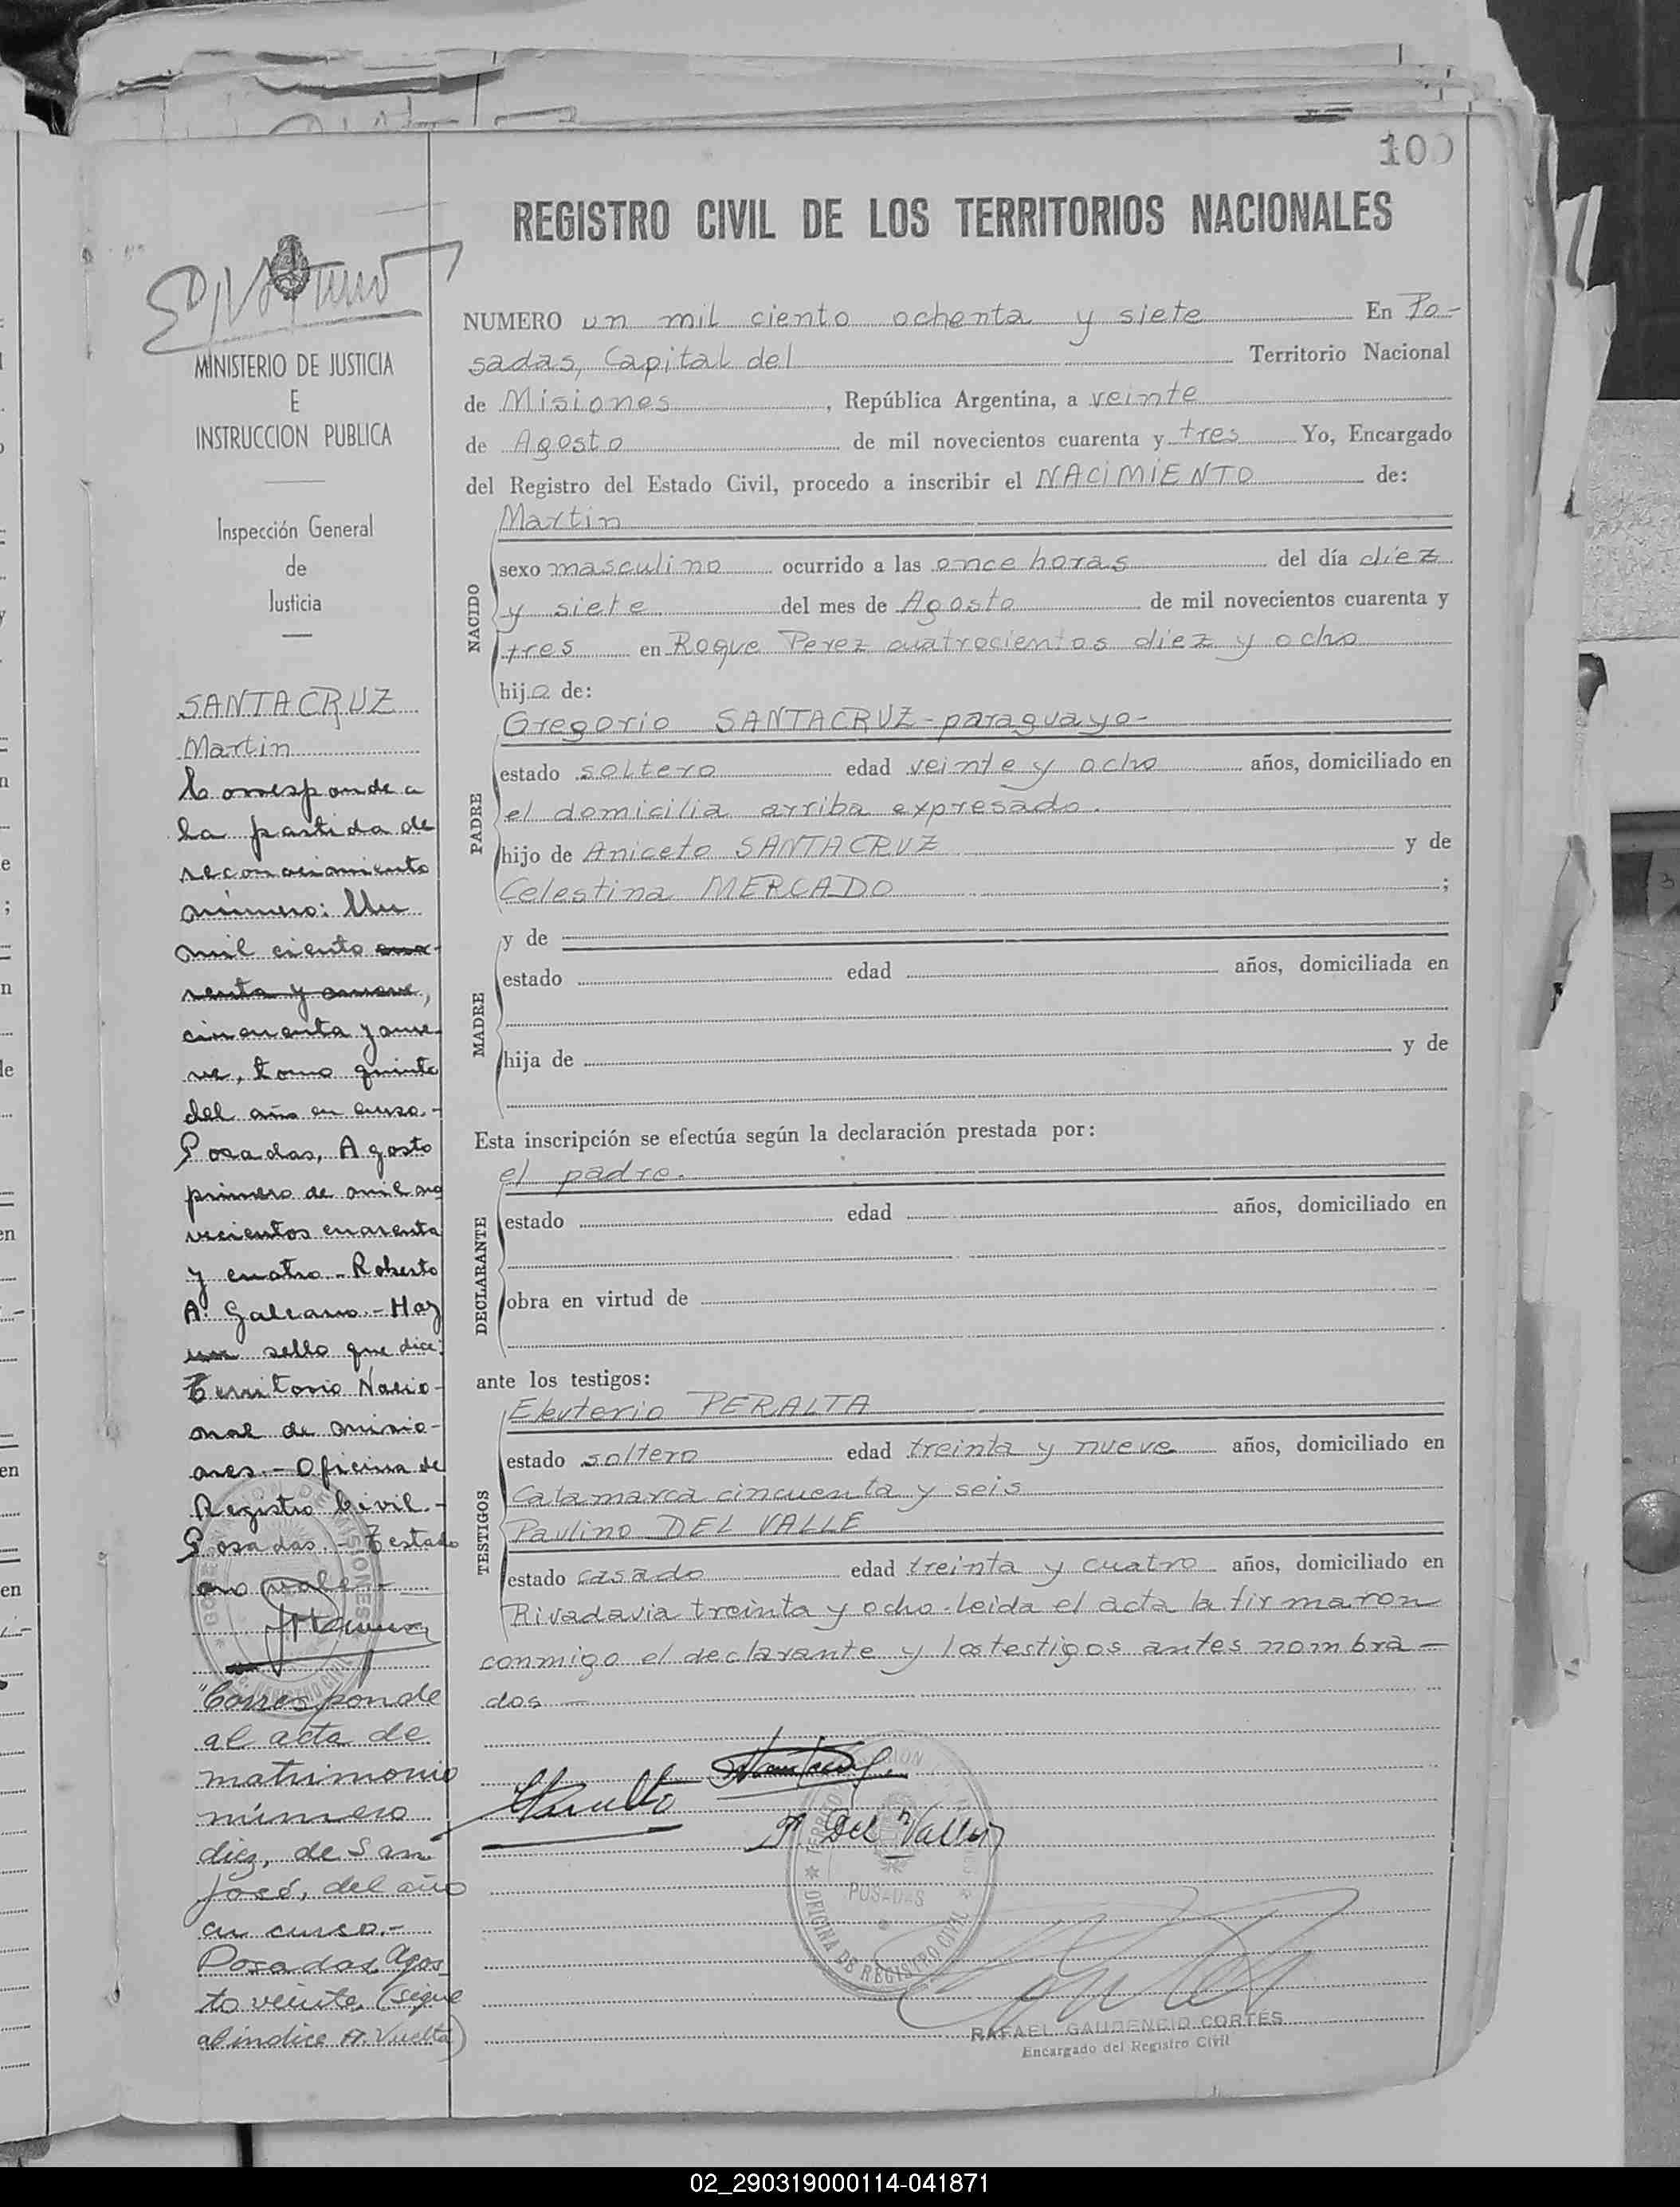 100
REGISTRO CIVIL DE LOS TERRITORIOS NACIONALES
MINISTERIO DE JUSTICIA
E
INSTRUCCION PUBLICA
Inspección General
de
Justicia
SANTACRUZ
Martin
Corresponde a
la partida de
reconocimiento
número: Un
mil ciento cua-
renta y nueve,
cincuenta y nue-
ve, tomo quinto
del año en curso.-
Posadas, Agosto
primero de mil no
vecientos cuarenta
y cuatro - Roberto
A. Galeano.- Hay
un sello que dice:
Territorio Nacio-
nal de Misio-
nes.- Oficina de
Registro Civil.-
Posadas.- Testado
no vale
"Corresponde
al acta de
matrimonio
número
diez, de San
José, del año
en curso.-
Posadas Agos-
to veinte, (sigue
al indice A. Vuelta)
NUMERO un mil ciento ochenta y siete En Po-
sadas, Capital del Territorio Nacional
de Misiones, República Argentina, a veinte
de Agosto de mil novecientos cuarenta y tres Yo, Encargado
del Registro del Estado Civil, procedo a inscribir el NACIMIENTO de:
NACIDO
Martin
sexo masculino ocurrido a las once horas del día diez
y siete del mes de Agosto de mil novecientos cuarenta y
tres en Roque Perez cuatrocientos diez y ocho
hijo de:
PADRE
Gregorio SANTACRUZ - paraguayo-
estado soltero edad veinte y ocho años, domiciliado en
el domicilia arriba expresado.
hijo de Aniceto SANTACRUZ y de
Celestina MERCADO ;
MADRE
y de
estado edad años, domiciliada en
hija de y de
Esta inscripción se efectúa según la declaración prestada por:
DECLARANTE
el padre.
estado edad años, domiciliado en
obra en virtud de
ante los testigos:
TESTIGOS
Eleuterio PERALTA
estado soltero edad treinta y nueve años, domiciliado en
Catamarca cincuenta y seis
Paulino DEL VALLE
estado casado edad treinta y cuatro años, domiciliado en
Rivadavia treinta y ocho - leida el acta la firmaron
conmigo el declarante y los testigos antes nombra-
dos -
P. Del Valle
POSADAS
OFICINA DE REGISTRO CIVIL
RAFAEL GAUDENCIO CORTÉS
Encargado del Registro Civil
02_290319000114-041871